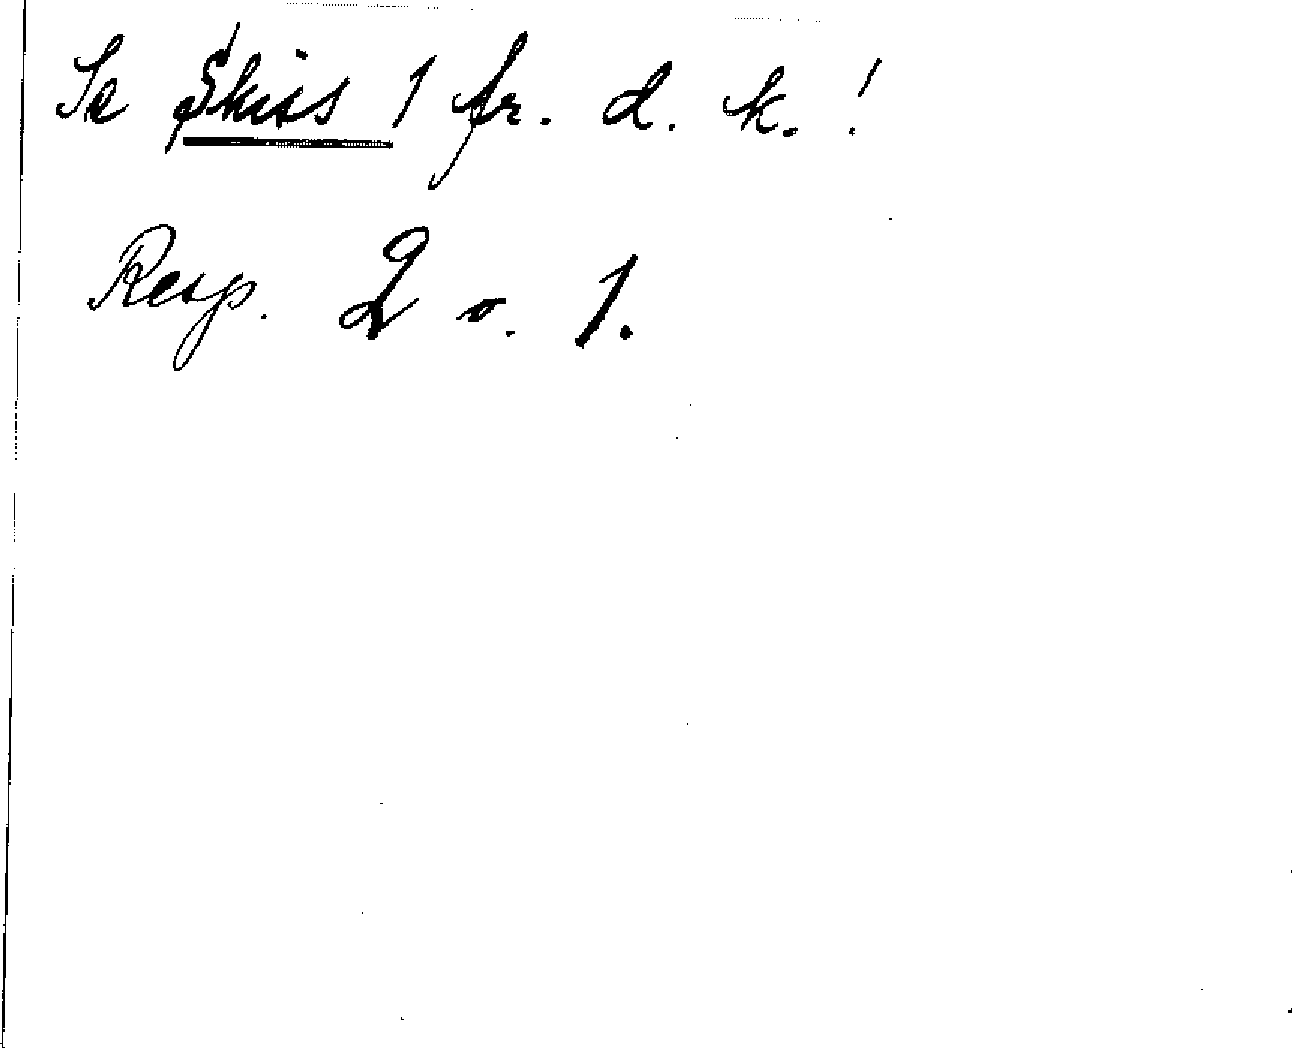 Se Skiss 1 fr. d. k.!
Resp. 2 o. 1.